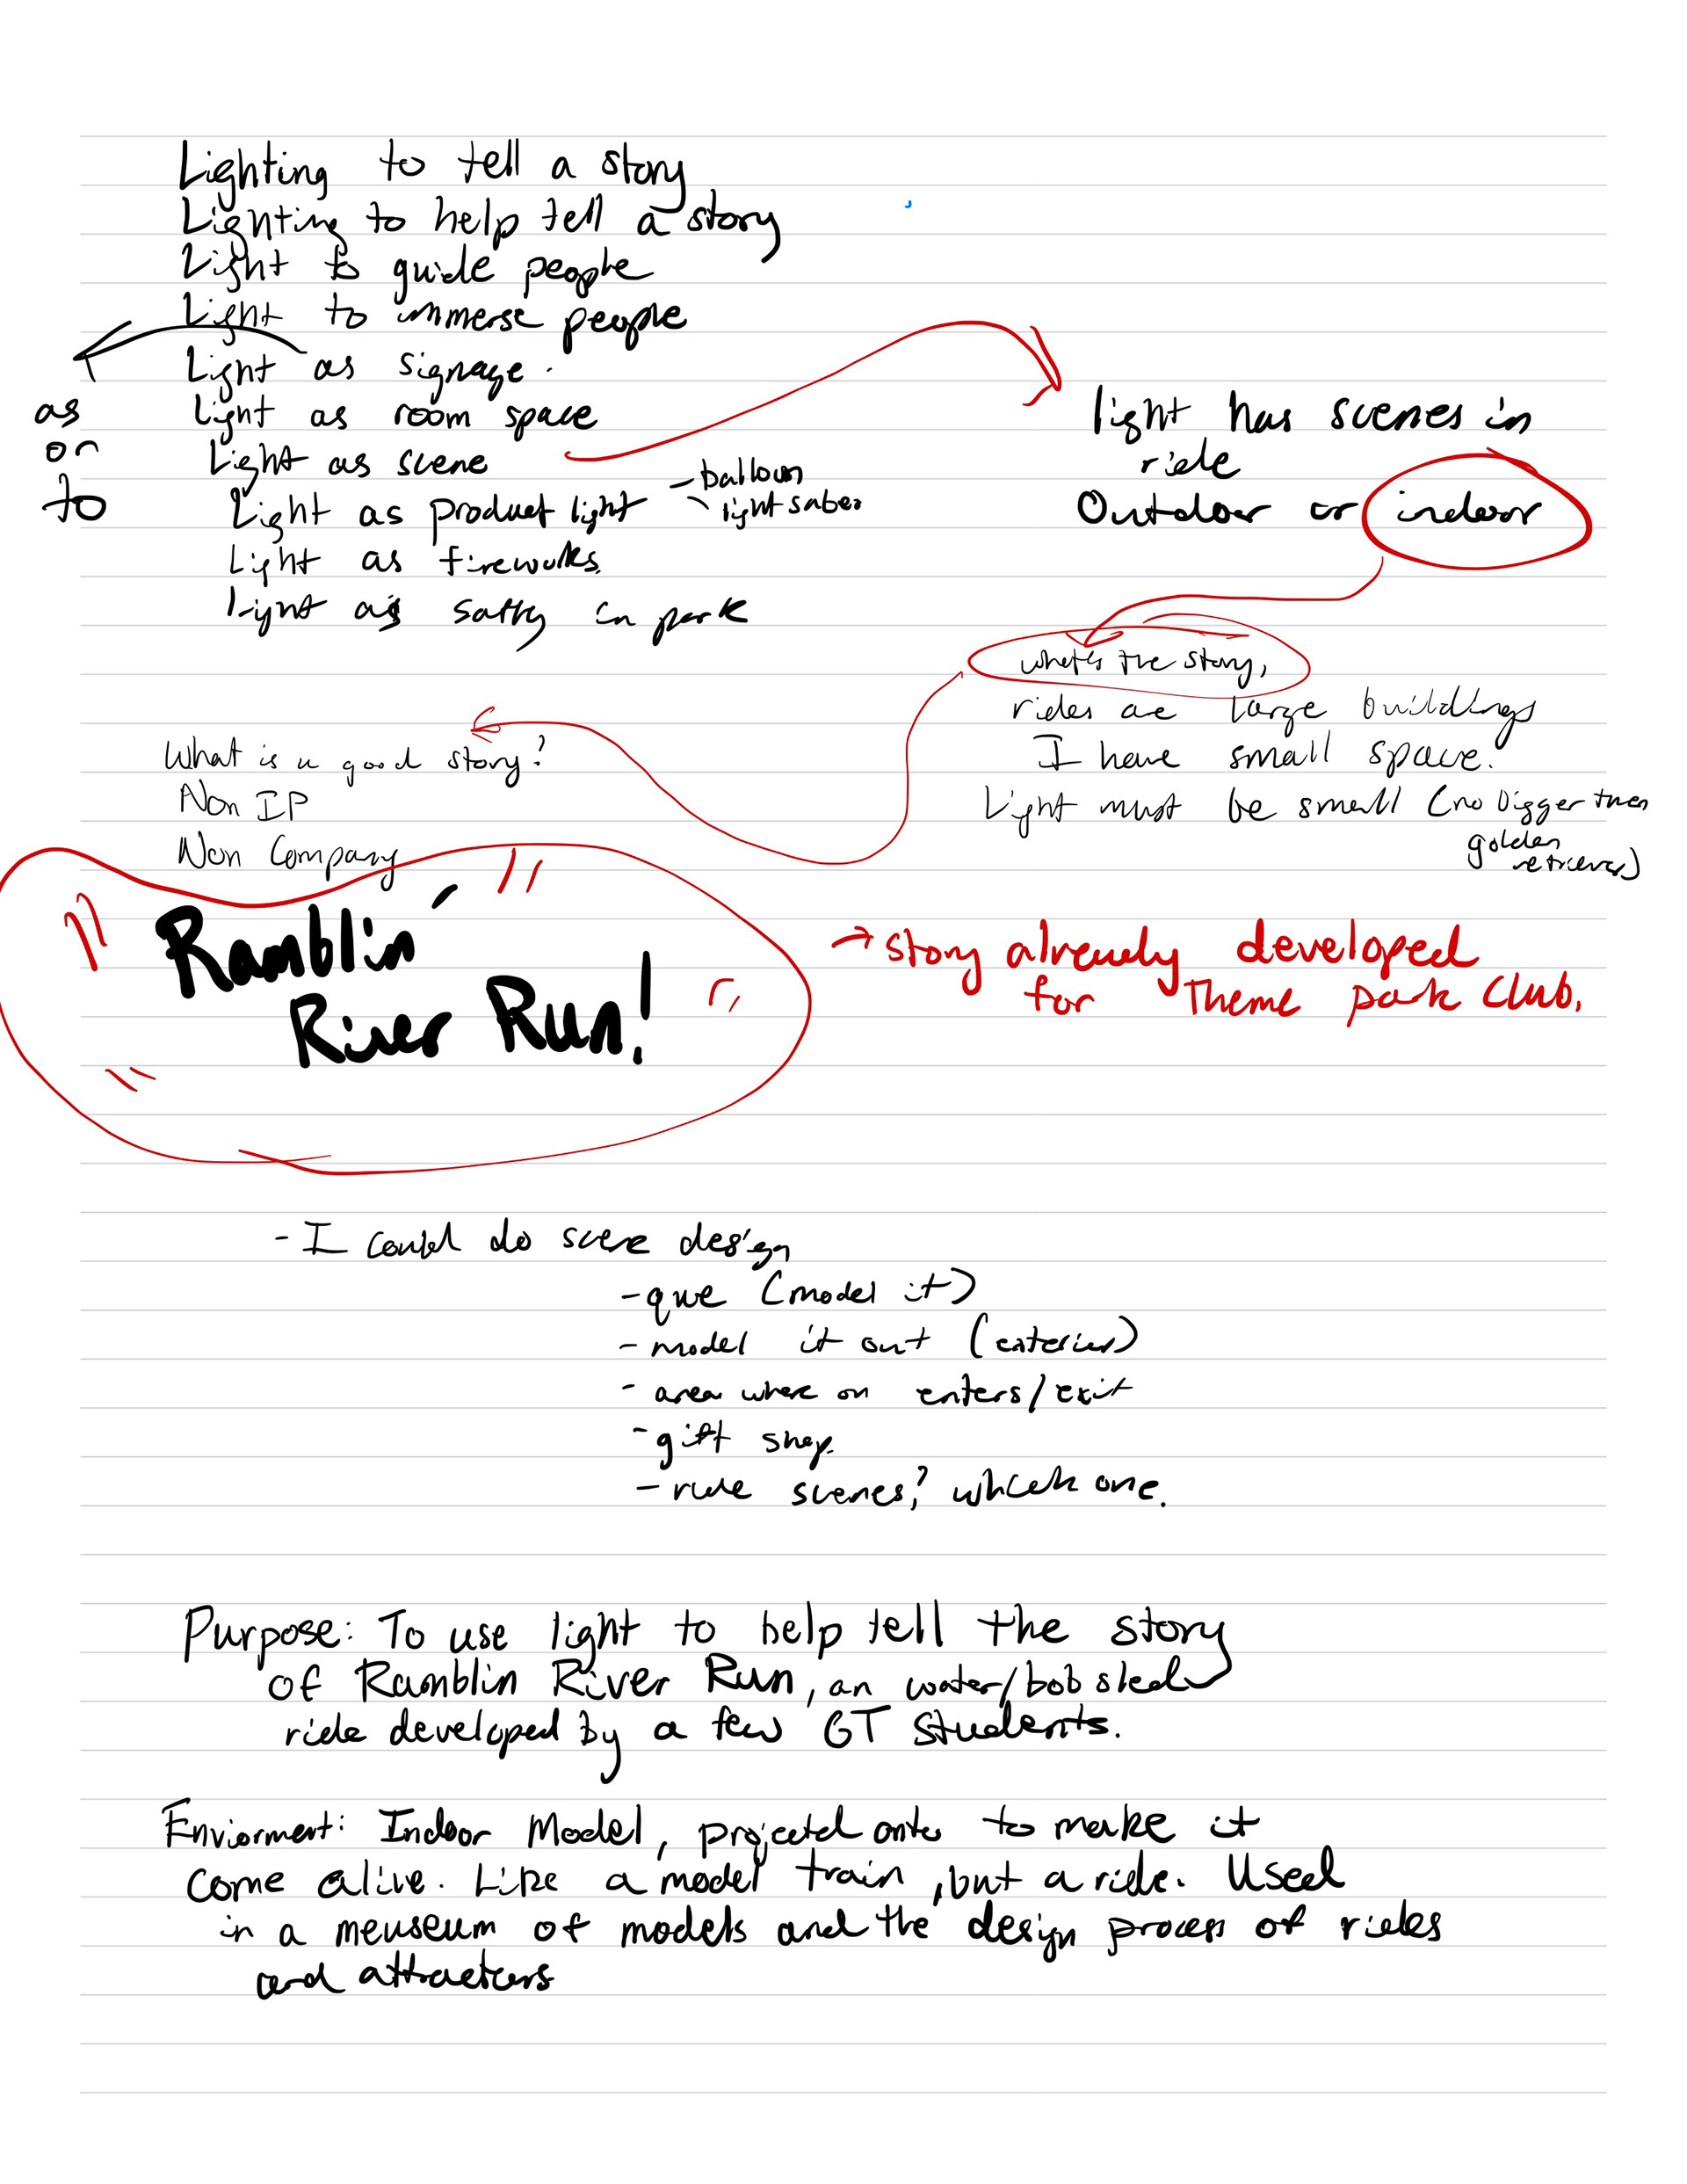 Lighting to tell a story
Lighting to help tell a story
Light to guide people
Light to immerse people
Light as signage.
Light as room space
Light as scene
Light as product light
- balloon
- lightsaber
Light as fireworks.
Light as in park
as
or
to
light has scenes in
ride
Outdoor or indoor
what's the story,
rides are large buildings
I have small space.
Light must be small (no bigger then
golden
retriever)
What is a good story?
Non IP
Non Company
Ramblin'
River Run!
→ story already developed
for Theme park Club.
- I could do scene design
- que (model it)
- model it out (exterior)
- area where on enters/exit
- gift shop.
- ride scenes? which one.
Purpose: To use light to help tell the story
of Ramblin River Run, an water/bobsled
ride developed by a few GT students.
Enviorment: Indoor Model, projected onto to make it
come alive. Like a model train, but a ride. Used
in a meuseum of models and the design process of rides
and attractions